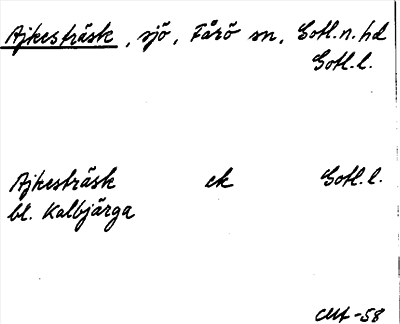 Ajkesträsk, sjö, Fårö sn, Gotl. n. hd
Gotl. l.
Ajkesträsk ek Gotl. l.
bl. Kalbjärga
-58